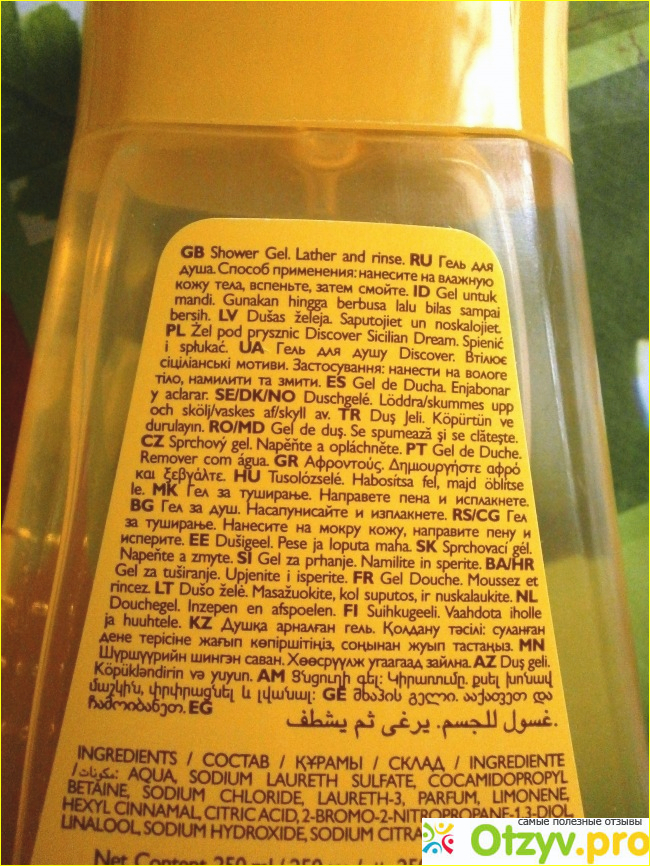 GB Shower Gel. Lather and rinse. RU Гель для
душа. Способ применения: нанесите на влажную
кожу тела, вспеньте, затем смойте. ID Gel untuk
mandi. Gunakan hingga berbusa lalu bilas sampai
bersih. LV Dušas želeja. Saputojiet un noskalojiet.
PL Żel pod prysznic Discover Sicilian Dream. Spienić
i spłukać. UA Гель для душу Discover. Втілює
сіціліанські мотиви. Застосування: нанести на вологе
тіло, намилити та змити. ES Gel de Ducha. Enjabonar
y aclarar. SE/DK/NO Duschgelé. Löddra/skummes upp
och skölj/vaskes af/skyll av. TR Duş Jeli. Köpürtün ve
durulayın. RO/MD Gel de duş. Se spumează şi se clăteşte.
CZ Sprchový gel. Napěňte a opláchněte. PT Gel de Duche.
Remover com água. GR Αφροντούς. Δημιουργήστε αφρό
και ξεβγάλτε. HU Tusolózselé. Habosítsa fel, majd öblítse
le. MK Гел за туширање. Направете пена и исплакнете.
BG Гел за душ. Насапунисайте и изплакнете. RS/CG Гел
за туширање. Нанесите на мокру кожу, направите пену и
исперите. EE Dušigeel. Pese ja loputa maha. SK Sprchovací gél.
Napeňte a zmyte. SI Gel za prhanje. Namilite in sperite. BA/HR
Gel za tuširanje. Upjenite i isperite. FR Gel Douche. Moussez et
rincez. LT Dušo želė. Masažuokite, kol suputos, ir nuskalaukite. NL
Douchegel. Inzepen en afspoelen. FI Suihkugeeli. Vaahdota iholle
ja huuhtele. KZ Душқа арналған гель. Қолдану тәсілі: суланған
дене терісіне жағып көпіршітіңіз, соңынан жуып тастаңыз. MN
Шүршүүрийн шингэн саван. Хөөсрүүлж угаагаад зайлна. AZ Duş geli.
Köpükləndirin və yuyun. AM Ցնցուղի գել: Կիրառումը. քսել խոնավ
մաշկին, փրփրացնել և լվանալ: GE შხაპის გელი. ააქაფეთ და
ჩამოიბანეთ. EG
غسول للجسم. يرغى ثم يشطف.
INGREDIENTS / СОСТАВ / ҚҰРАМЫ / СКЛАД / INGREDIENTE
/ مكونات: AQUA, SODIUM LAURETH SULFATE, COCAMIDOPROPYL
BETAINE, SODIUM CHLORIDE, LAURETH-3, PARFUM, LIMONENE,
HEXYL CINNAMAL, CITRIC ACID, 2-BROMO-2-NITROPROPANE-1,3-DIOL,
LINALOOL, SODIUM HYDROXIDE, SODIUM CITRA
Net Content 250 ml
самые полезные отзывы
Otzyv.pro